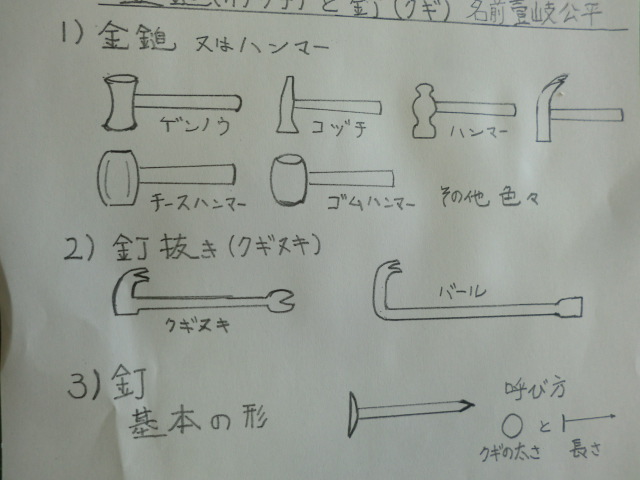 と釘(クギ) 名前壹岐公平
1) 金鎚 又はハンマー
ゲンノウ コヅチ ハンマー
チースハンマー ゴムハンマー その他 色々
2) 釘抜き(クギヌキ)
クギヌキ バール
3) 釘
基本の形
呼び方
と
クギの太さ 長さ